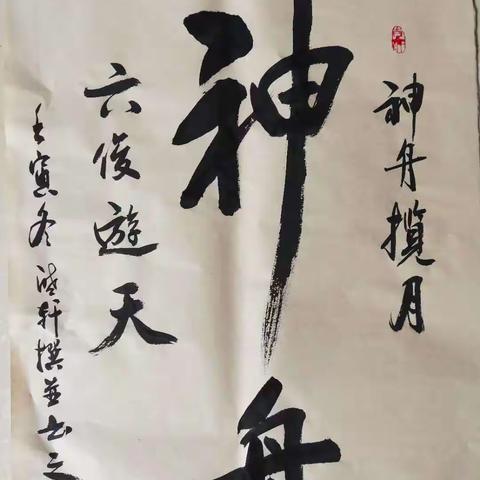 神舟揽月
神舟
六俊遊天
壬寅冬 轩撰並书之